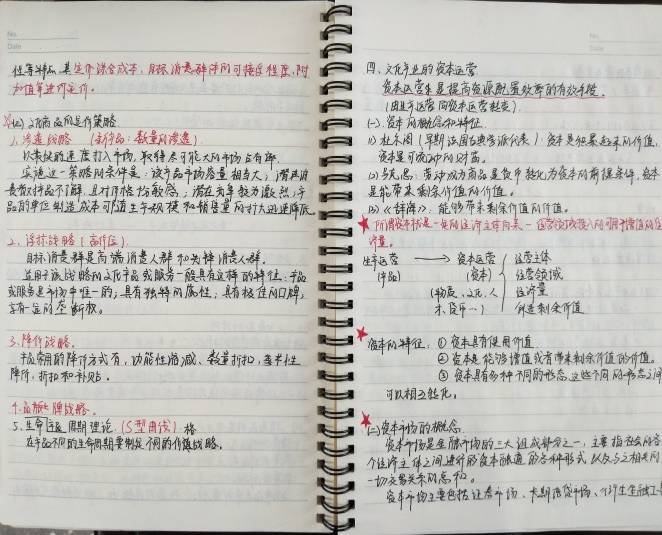 No.
Date
性等特点,其定价涉及成本、目标消费群体的可接受程度、附
加值等进行定价。
(七)文化商品的定价策略
1.渗透战略(新作品:数量的渗透)
以最快的速度打入市场,取得尽可能大的市场占有率。
实施这一策略的条件是:该产品市场容量相当大;潜在消
费者对产品不了解,且对价格比较敏感;潜在竞争较为激烈;产
品的单位制造成本可随生产规模和销售量的扩大迅速降低
2.浮标战略(高价位)
目标消费群是高端消费人群和先锋消费人群。
适用于该战略的文化产品或服务一般具有这样的特征:产品
或服务是市场中唯一的;具有独特的属性;具有极佳的口碑,
享有一定的垄断权。
3.降价战略。
较常用的降价方式有,功能性消减、数量折扣,季节性
降价,折扣和补贴。
4.品牌战略。
5.生命周期理论(S型曲线)
在产品不同的生命周期要制定不同的价值战略。
No.
Date
四、文化产业的资本运营
资本运营本是提高资源配置效率的有效手段。
(由生产运营向资本运营转变)
(一).资本的概念和特征.
(1) 杜尔阁(早期法国古典学派代表):资本是积累起来的价值,
资本是可流动的财富。
(2) 马克思:劳动成为商品是货币转化为资本的前提条件,资本
是能带来剩余价值的价值。
(3) 《辞海》:能够带来剩余价值的价值。
所谓资本就是一定的经济主体向某一运营领域投入的可用于增值的经
济量。
生产运营 → 资本运营 运营主体
(产品) (资本) 运营领域
(物质、文化、人 经济量
才、货币…) 创造剩余价值
资本的特征:① 资本具有使用价值
② 资本是能够增值或者带来剩余价值的价值。
③ 资本具有多种不同的形态,这些不同的形态之间
可以相互转化。
(二)资本市场的概念
资本市场是金融市场的三大组成部分之一,主要指社会的各
个经济主体之间进行的资本融通的各种形式以及与之相关的
一切交易关系的总和。
资本市场主要包括证券市场、长期借贷市场、衍生金融工具